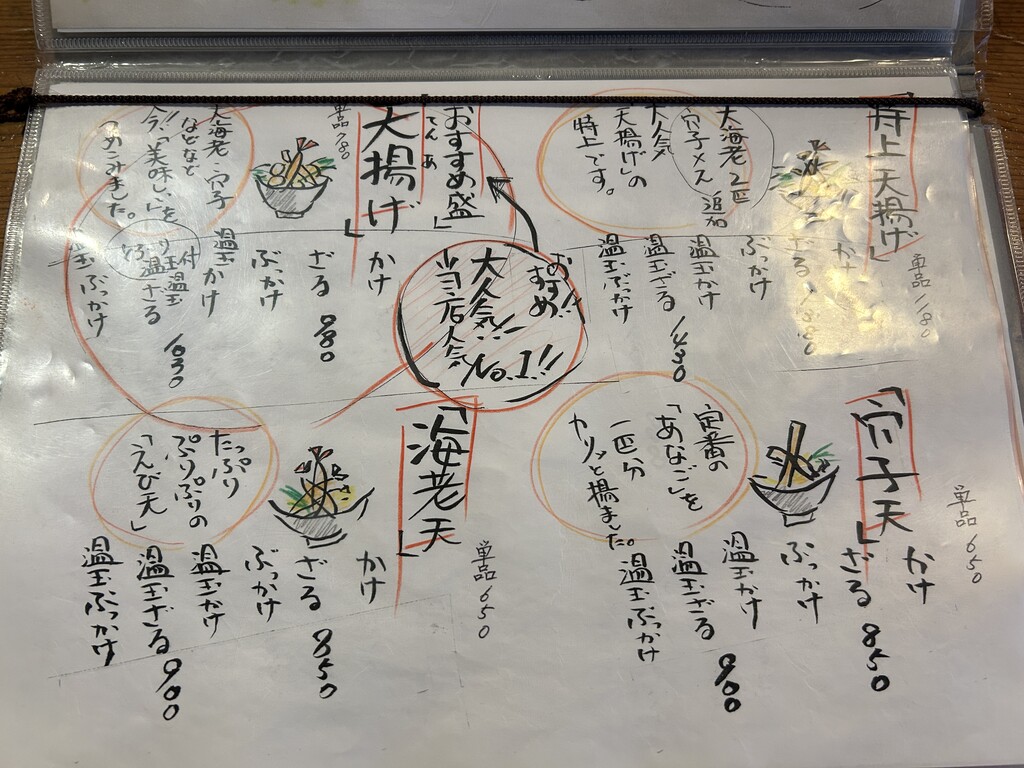 「特上天揚げ」
単品 1180
大海老2匹
穴子〆メ 追加
大人気
「天揚げ」の
特上です。
かけ
ざる 1380
ぶっかけ
温玉かけ
温玉ざる 1430
温玉ぶっかけ
おすすめ盛
「大揚げ」
てんあ
単品 780
大海老・穴子
などなど
今、美味しいを
つめこみました。
かけ
ざる 980
ぶっかけ
温玉かけ
温玉ざる 1030
温玉ぶっかけ
おすすめ!!
大人気!!
当店人気
No.1!!
「穴子天」
単品 650
定番の
「あなご」を
一匹分
カリッと揚ました。
かけ
ざる 850
ぶっかけ
温玉かけ
温玉ざる 900
温玉ぶっかけ
「海老天」
単品 650
たっぷり
ぷりぷりの
「えび天」
かけ
ざる 850
ぶっかけ
温玉かけ
温玉ざる 900
温玉ぶっかけ